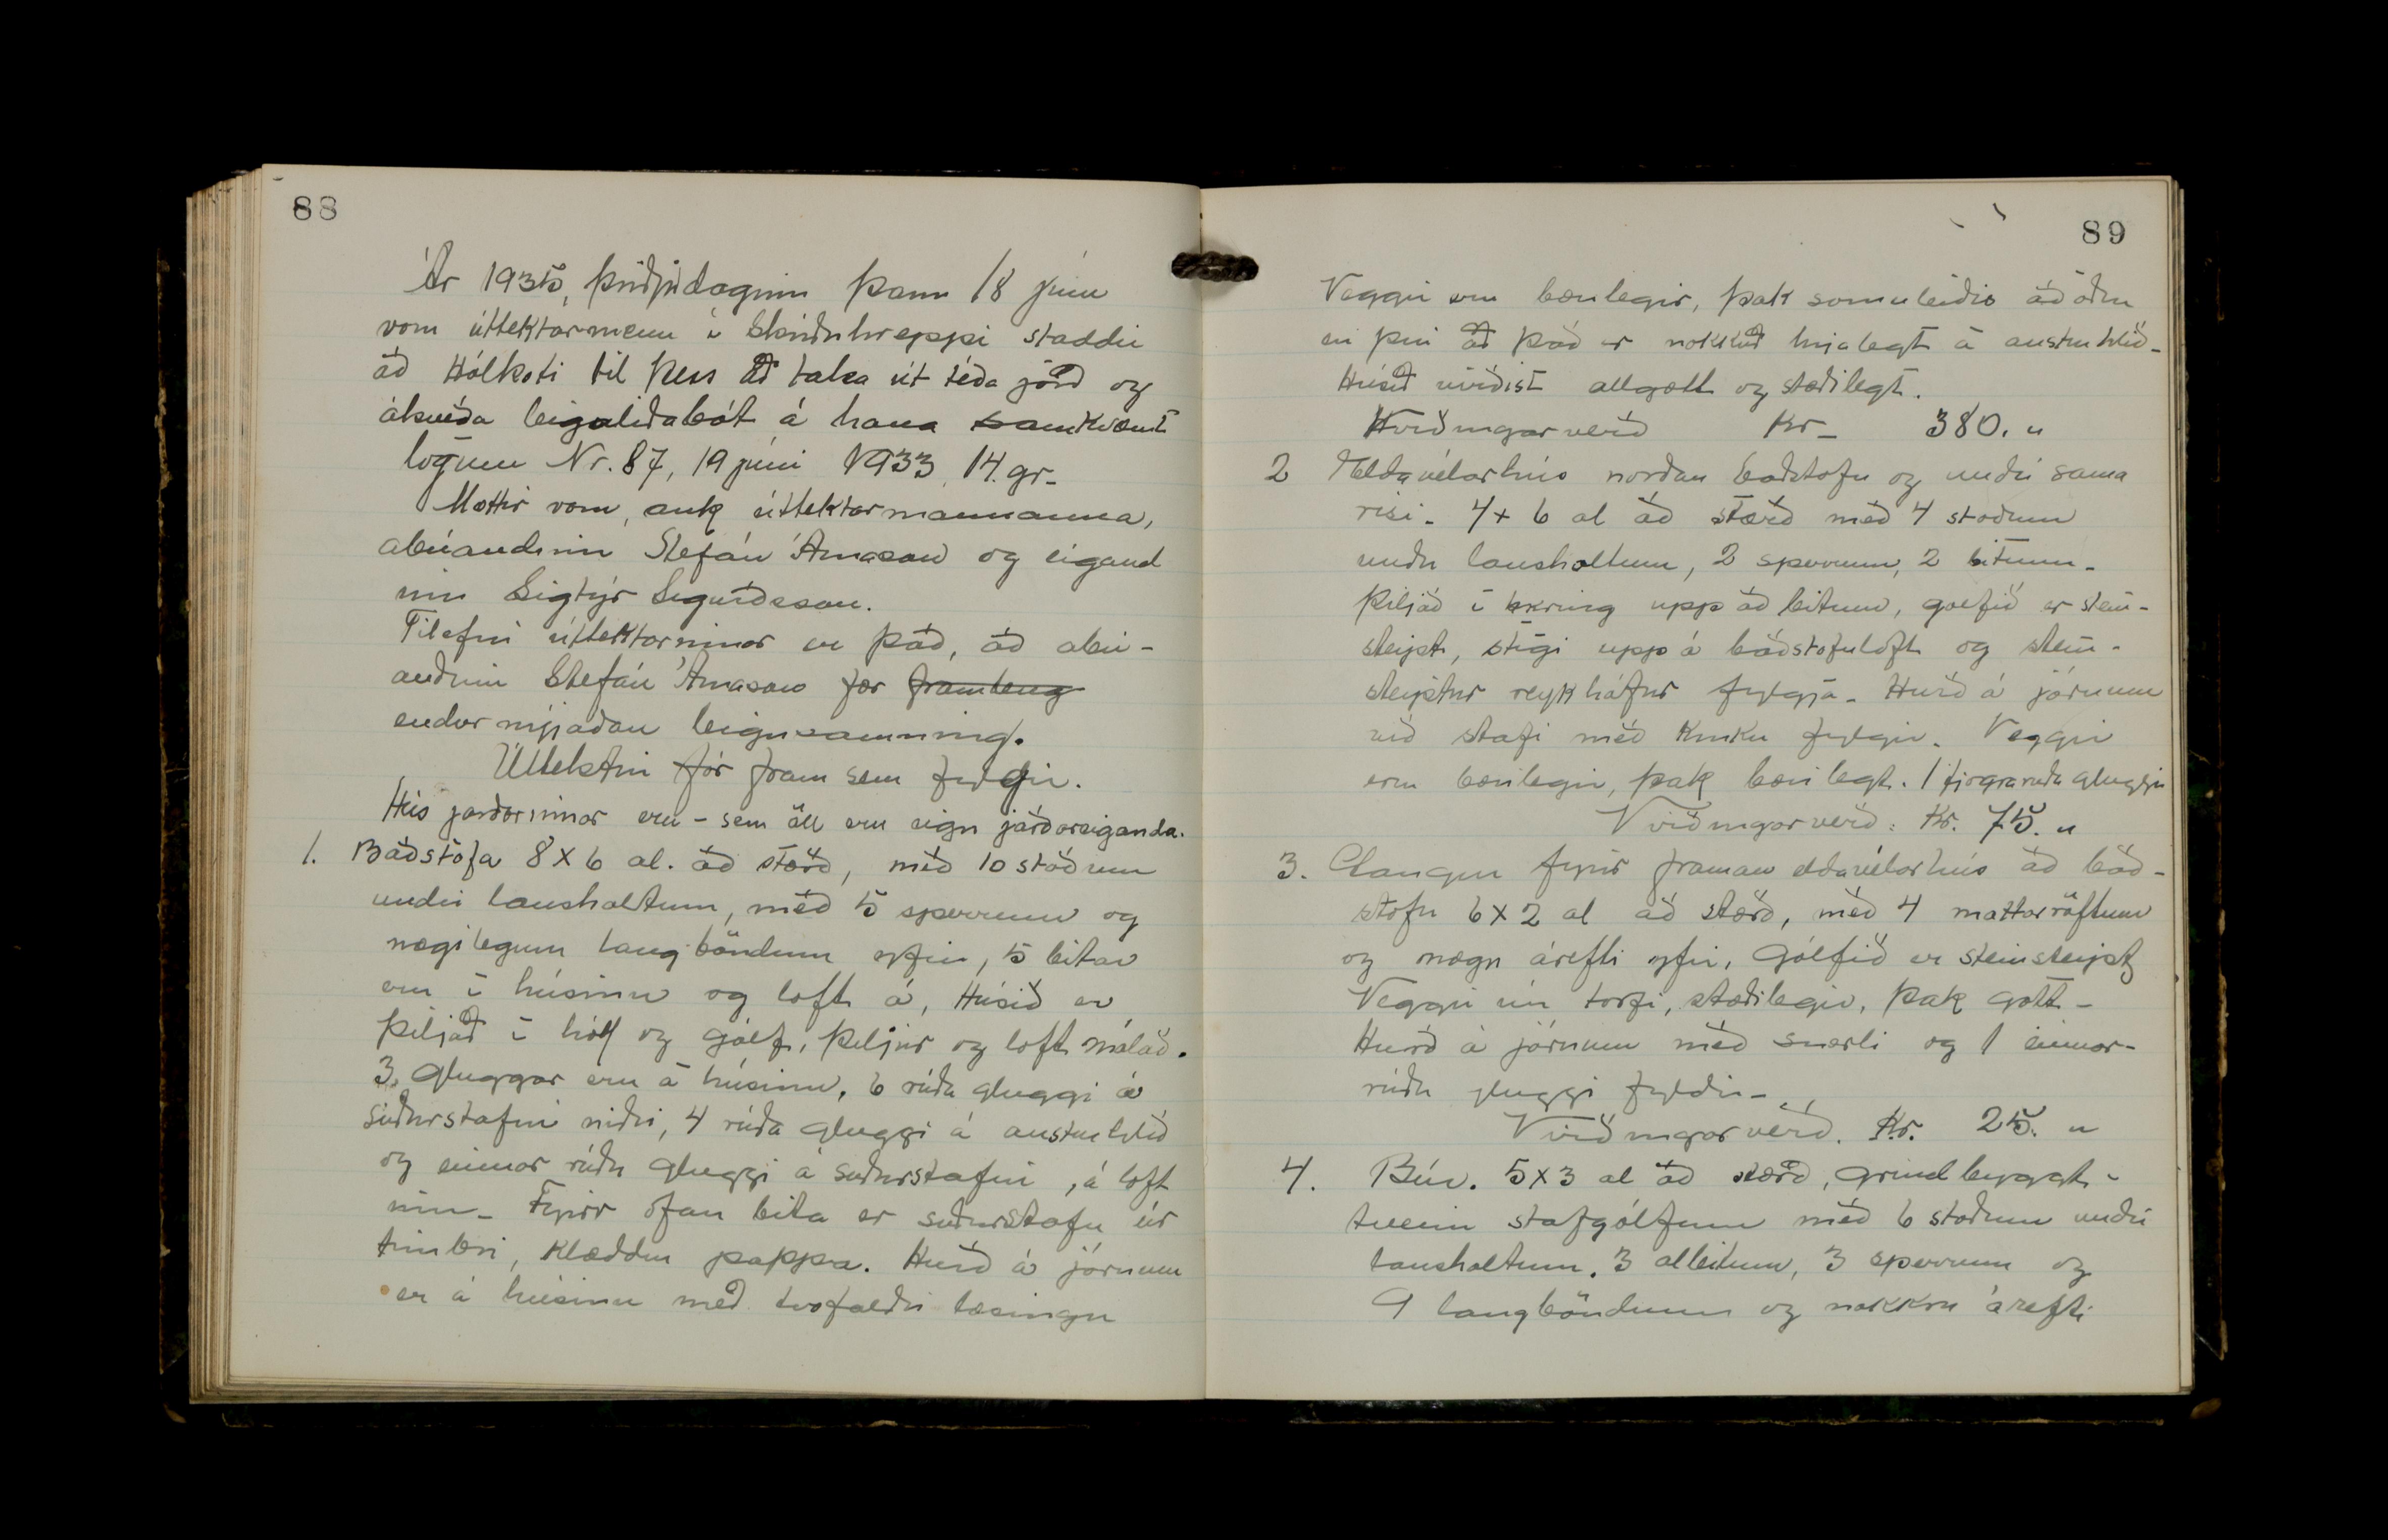 88
Ár 1935, þriðjudaginn þann 18 júní
voru úttektarmenn í Skriðuhreppi staddir
að Hólkoti til þess að taka út téða jörð og
ákveða leiguliðabót á hana samkvæmt
lögum Nr. 87, 19 júní 1933, 14. gr.
Mættir voru, auk úttektarmannanna,
ábúandinn Stefán Árnason og eigand
inn Sigtýr Sigurðsson.
Tilefni úttektarinnar er það, að ábú-
andinn Stefán Árnason fær framleng
endurnýjaðan leigusamning.
Úttektin fór fram sem fylgir.
Hús jarðarinnar eru - sem öll eru eign jarðareiganda.
1. Baðstofa 8 x 6 al. að stærð, með 10 stöðum
undir lausholtum, með 5 sperrum og
nægilegum langböndum yfir, 5 bitar
eru í húsinu og loft á, Húsið er
þiljað í hólf og gólf, þiljur og loft málað.
3 gluggar eru á húsinu, 6 rúðu gluggi á
suðurstafni niðri, 4 rúða gluggi á austurhlið
og einnar rúðu gluggi á suðurstafni, á loft
inu - Fyrir ofan bita er suðurstafn úr
timbri, klæddur pappa. Hurð á járnum
er á húsinu með tvöfaldri læsingu
89
Veggir eru bærilegir, þak sömuleiðis að öðru
en því að það er nokkuð hrjálegt á austurhlið-
Húsið virðist allgott og stæðilegt.
Virðingarverð Kr- 380. "
2 Eldavélarhús norðan baðstofu og undir sama
risi. 4 x 6 al að stærð með 4 stoðum
undir lausholtum, 2 sperrum, 2 bitum.
Þiljað í kring upp að bitum, gólfið er stein-
steypt, stigi upp á baðstofuloft og stein-
steyptur reykháfur fylgja. Hurð á járnum
við stafi með krúku fylgir. Veggir
eru bærilegir, þak bærilegt. 1 fjögra rúðu gluggi
Virðingarverð: Kr. 75. "
3. Göngur fyrir framan eldavélarhús að bað-
stofu 6 x 2 al að stærð, með 4 mattarröftum
og nægu árefti yfir. Gólfið er steinsteypt
Veggir úr torfi, stæðilegir, þak gott -
Hurð á járnum með snerli og 1 einnar-
rúðu gluggi fylgir -
Virðingarverð. Kr. 25. "
4. Búr. 5 x 3 al að stærð, grindbyggt -
tveim stafgólfum með 6 stoðum undir
lausholtum. 3 bitum, 3 sperrum og
9 langböndum og nokkru árefti